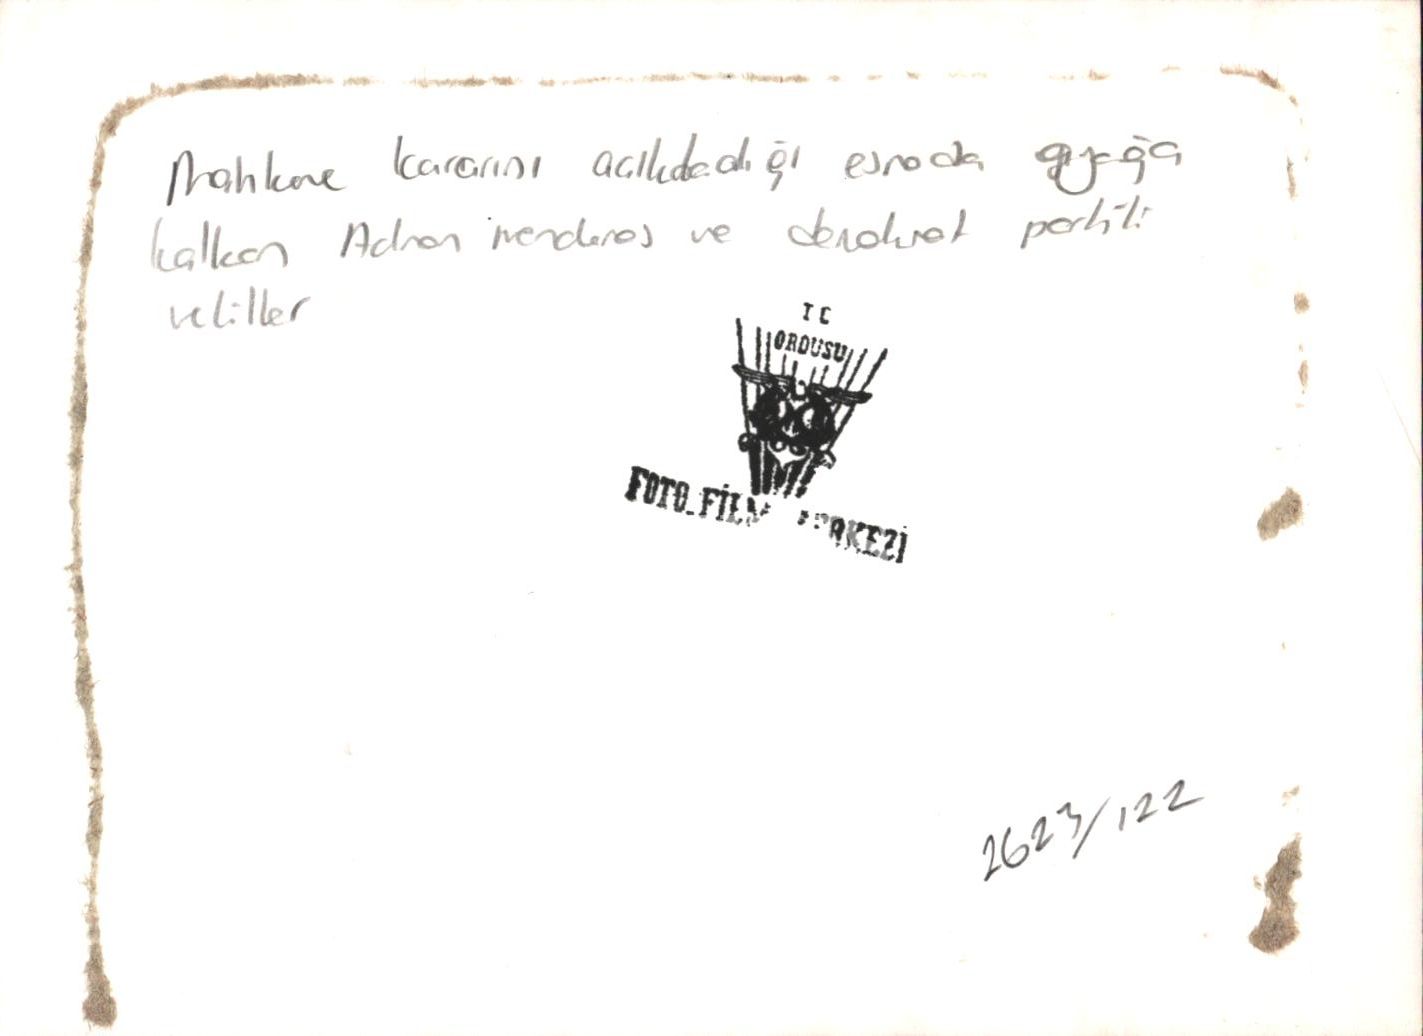 Mahkeme kararını açıkladığı esnada ayağa
kalkan Adnan menderes ve demokrat partili
vekiller
T C
ORDUSU
FOTO-FİLM MERKEZİ
2623/122